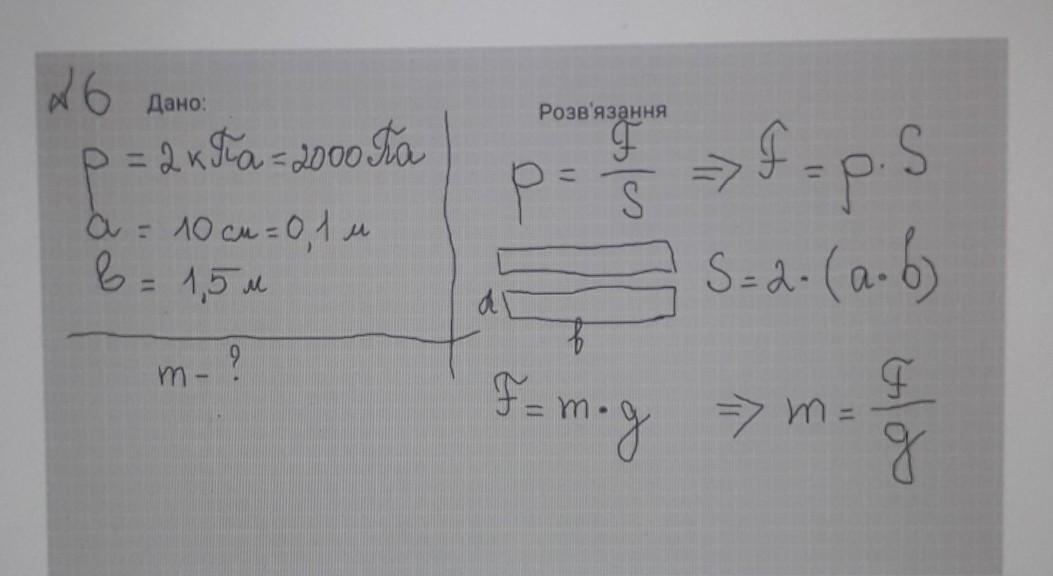 №6 Дано:
p = 2 кПа = 2000 Па
a = 10 см = 0,1 м
b = 1,5 м
m - ?
Розв'язання
p = F/S => F = p · S
S = 2 · (a · b)
a
b
F = m · g => m = F/g